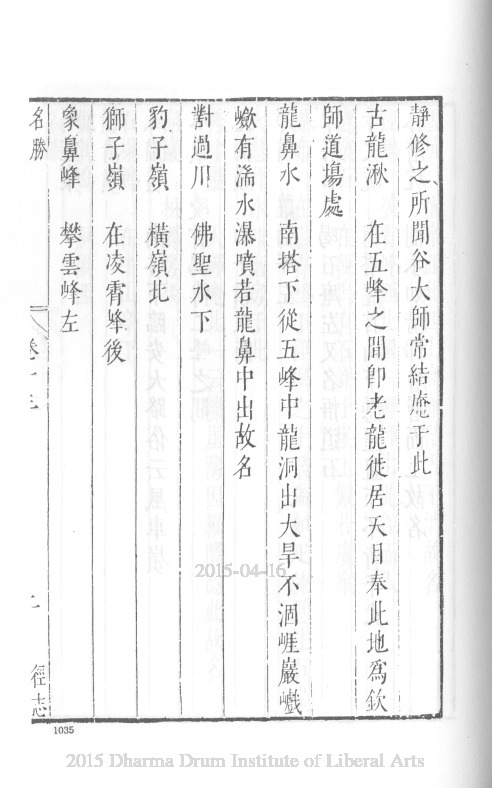 靜修之所聞谷大師常結庵于此
古龍湫　在五峰之間卽老龍徙居天目奉此地爲欽
師道場處
龍鼻水　南塔下從五峰中龍洞出大旱不涸崕巖巇
巇有湍水瀑噴若龍鼻中出故名
對過川　佛聖水下
豹子嶺　橫嶺北
獅子嶺　在凌霄峰後
象鼻峰　攀雲峰左
名勝　卷十三　二　徑志
1035
2015-04-16
2015 Dharma Drum Institute of Liberal Arts